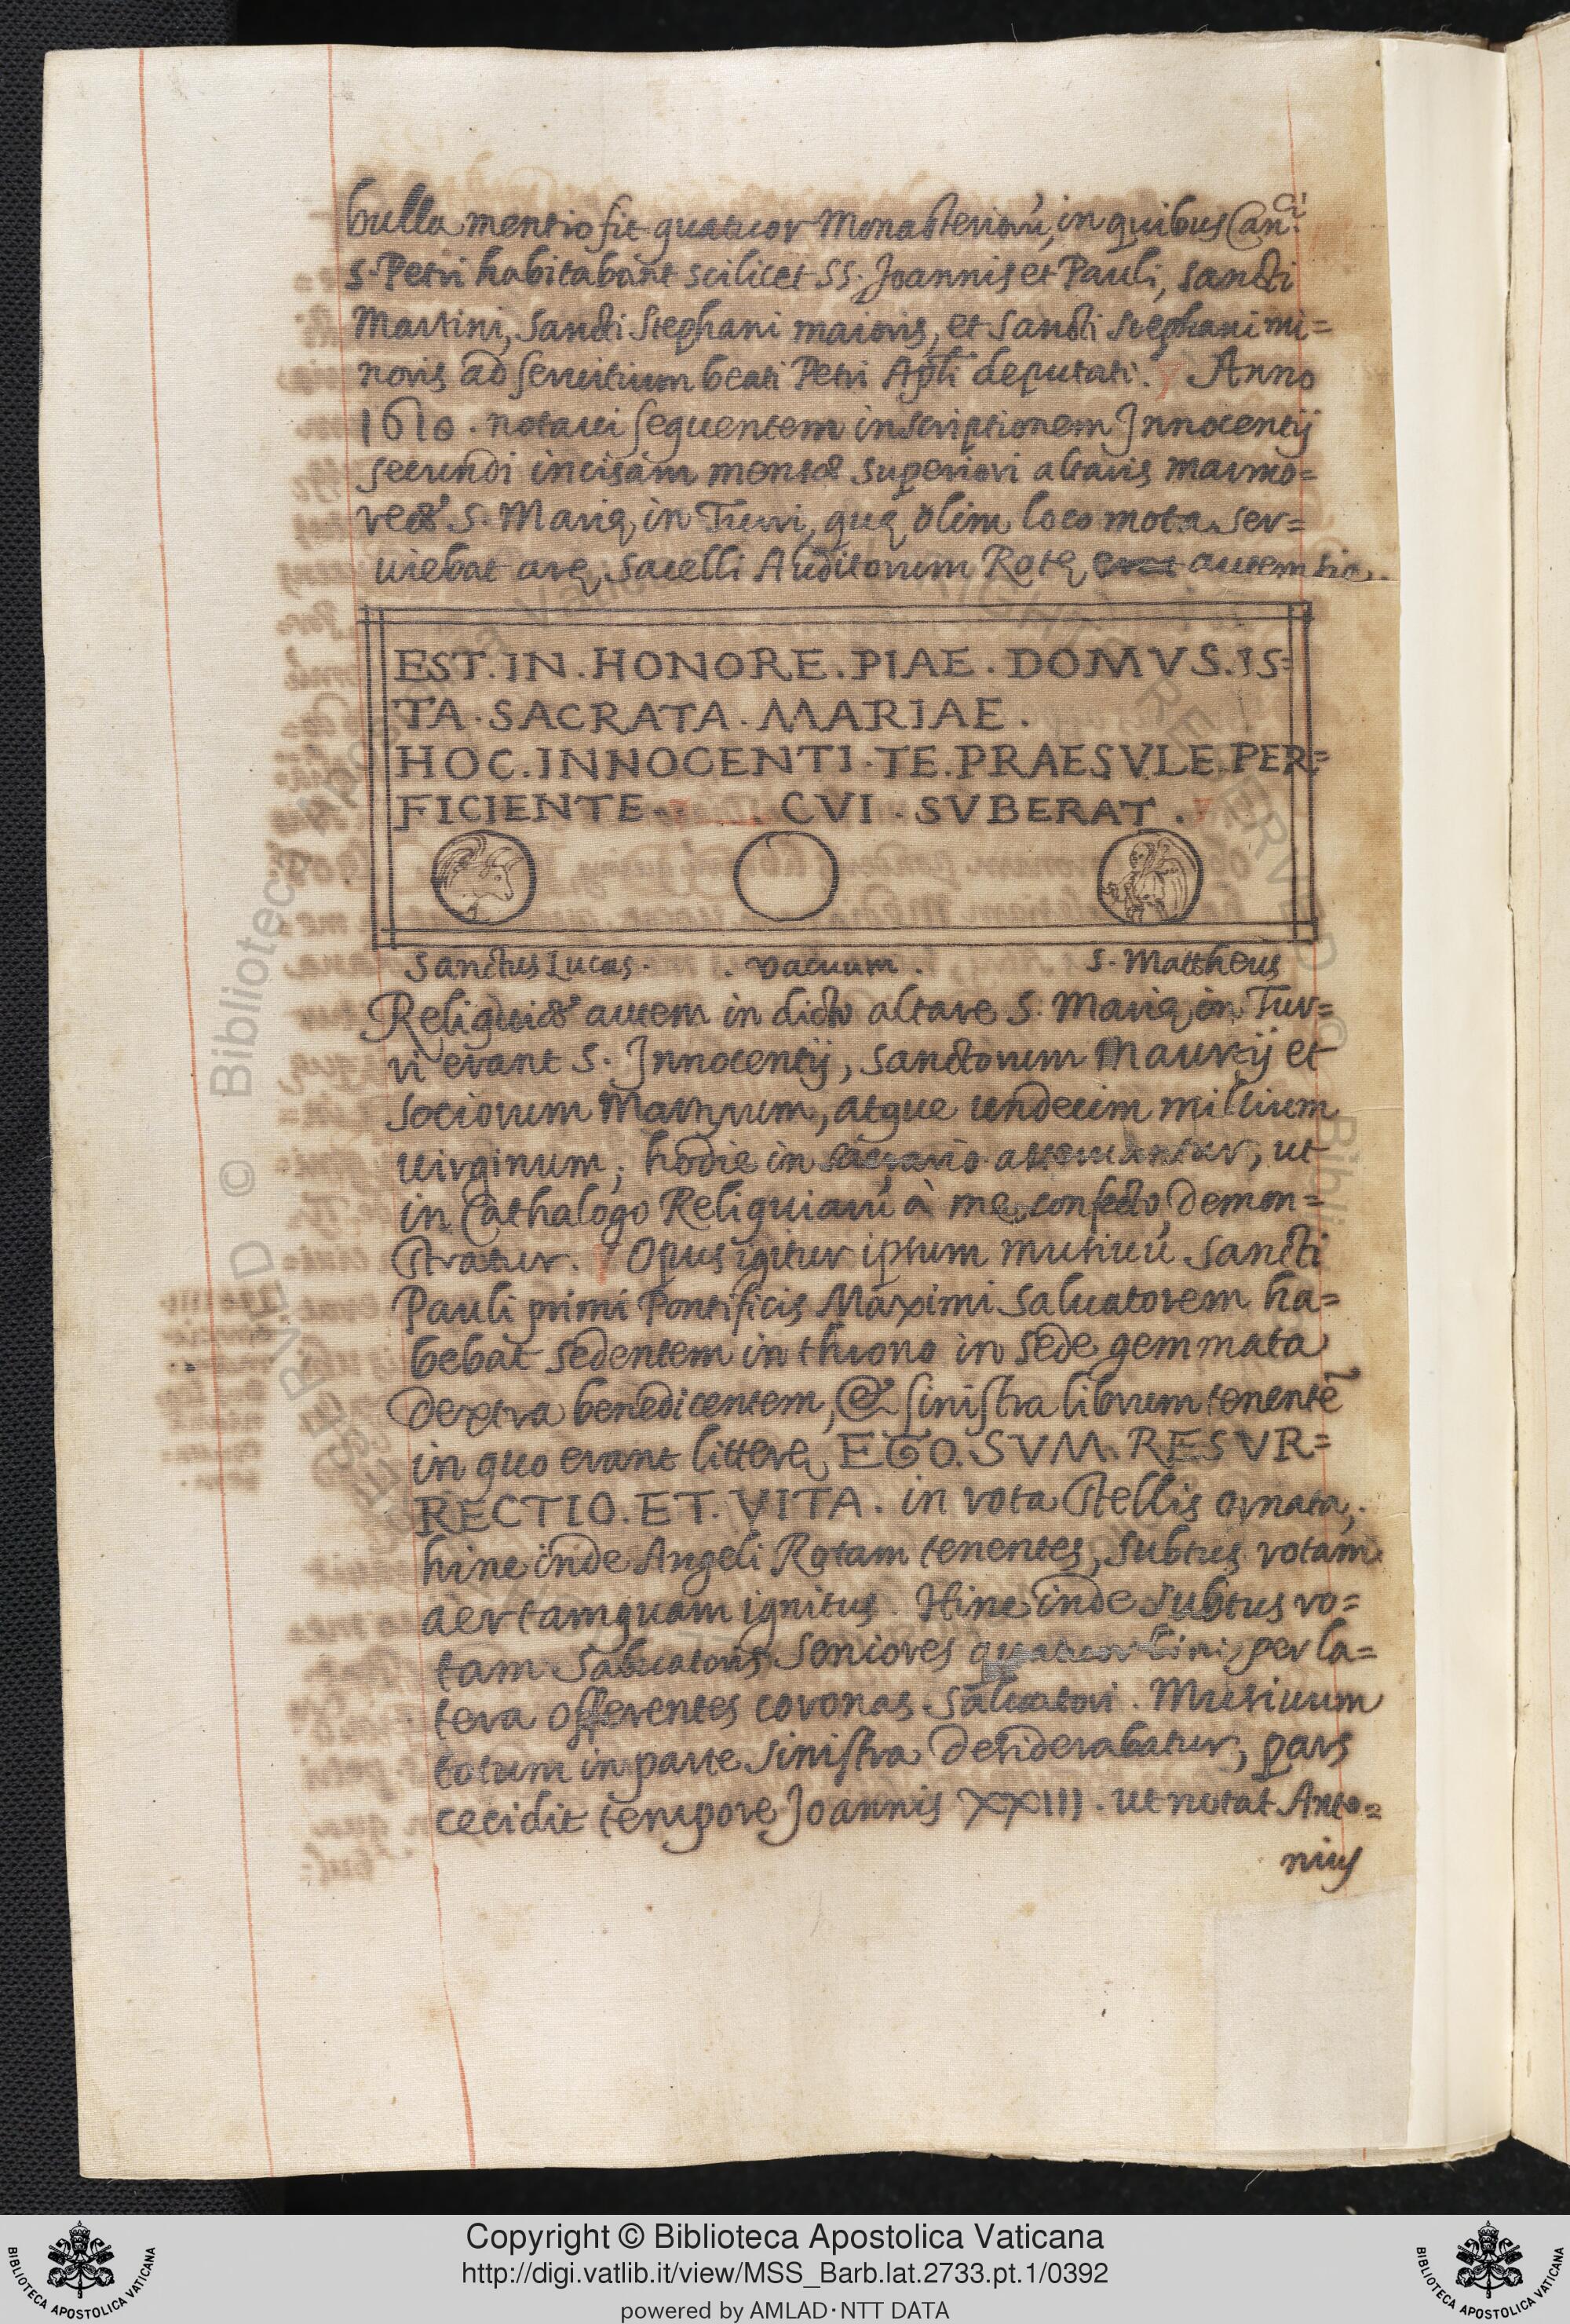 bulla mentio fit quatuor Monasteriorū, in quibus Can.ci
S. Petri habitabant scilicet SS. Joannis et Pauli, sancti
Martini, sancti Stephani maioris, et sancti Stephani mi=
noris ad seruitium beati Petri Apli deputati. Anno
1610. notaui sequentem inscriptionem Innocentij
secundi incisam mensæ superiori altaris marmo=
reæ S. Marię in Turri, quę olim loco mota ser=
uiebat arę sacelli Auditorum Rotę erat autem sic.
EST.IN.HONORE.PIAE.DOMVS.IS=
TA.SACRATA.MARIAE.
HOC.INNOCENTI.TE.PRAESVLE.PER=
FICIENTE. CVI.SVBERAT.
Sanctus Lucas. . vacuum. S. Mattheus
Reliquiæ autem in dicto altare S. Marię in Tur=
ri erant S. Innocentij, sanctorum Mauritij et
sociorum Martyrum, atque undecim millium
uirginum; hodie in sacrario asseruantur, ut
in Cathalogo Reliquiarū à me confecto demon=
stratur. Opus igitur ipsum musiuū sancti
Pauli primi Pontificis Maximi Saluatorem ha=
bebat sedentem in throno in sede gemmata
dextra benedicentem, & sinistra librum tenentē
in quo erant litterę EGO.SVM.RESVR=
RECTIO.ET.VITA. in rota stellis ornata;
hinc inde Angeli Rotam tenentes, subtus rotam
aer tamquam ignitus. Hinc inde subtus ro=
tam Saluatoris Seniores quatuor bini, per la=
tera offerentes coronas Saluatori. Musiuum
totum in parte sinistra desiderabatur, pars
cecidit tempore Joannis XXIII. ut notat Anto=
nius
Copyright © Biblioteca Apostolica Vaticana
http://digi.vatlib.it/view/MSS_Barb.lat.2733.pt.1/0392
powered by AMLAD·NTT DATA
BIBLIOTECA APOSTOLICA VATICANA
BIBLIOTECA APOSTOLICA VATICANA